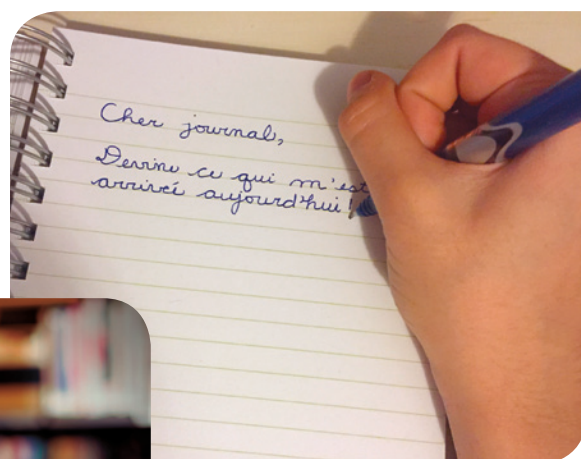 Cher journal,
Devine ce qui m'est
arrivé aujourd'hui!